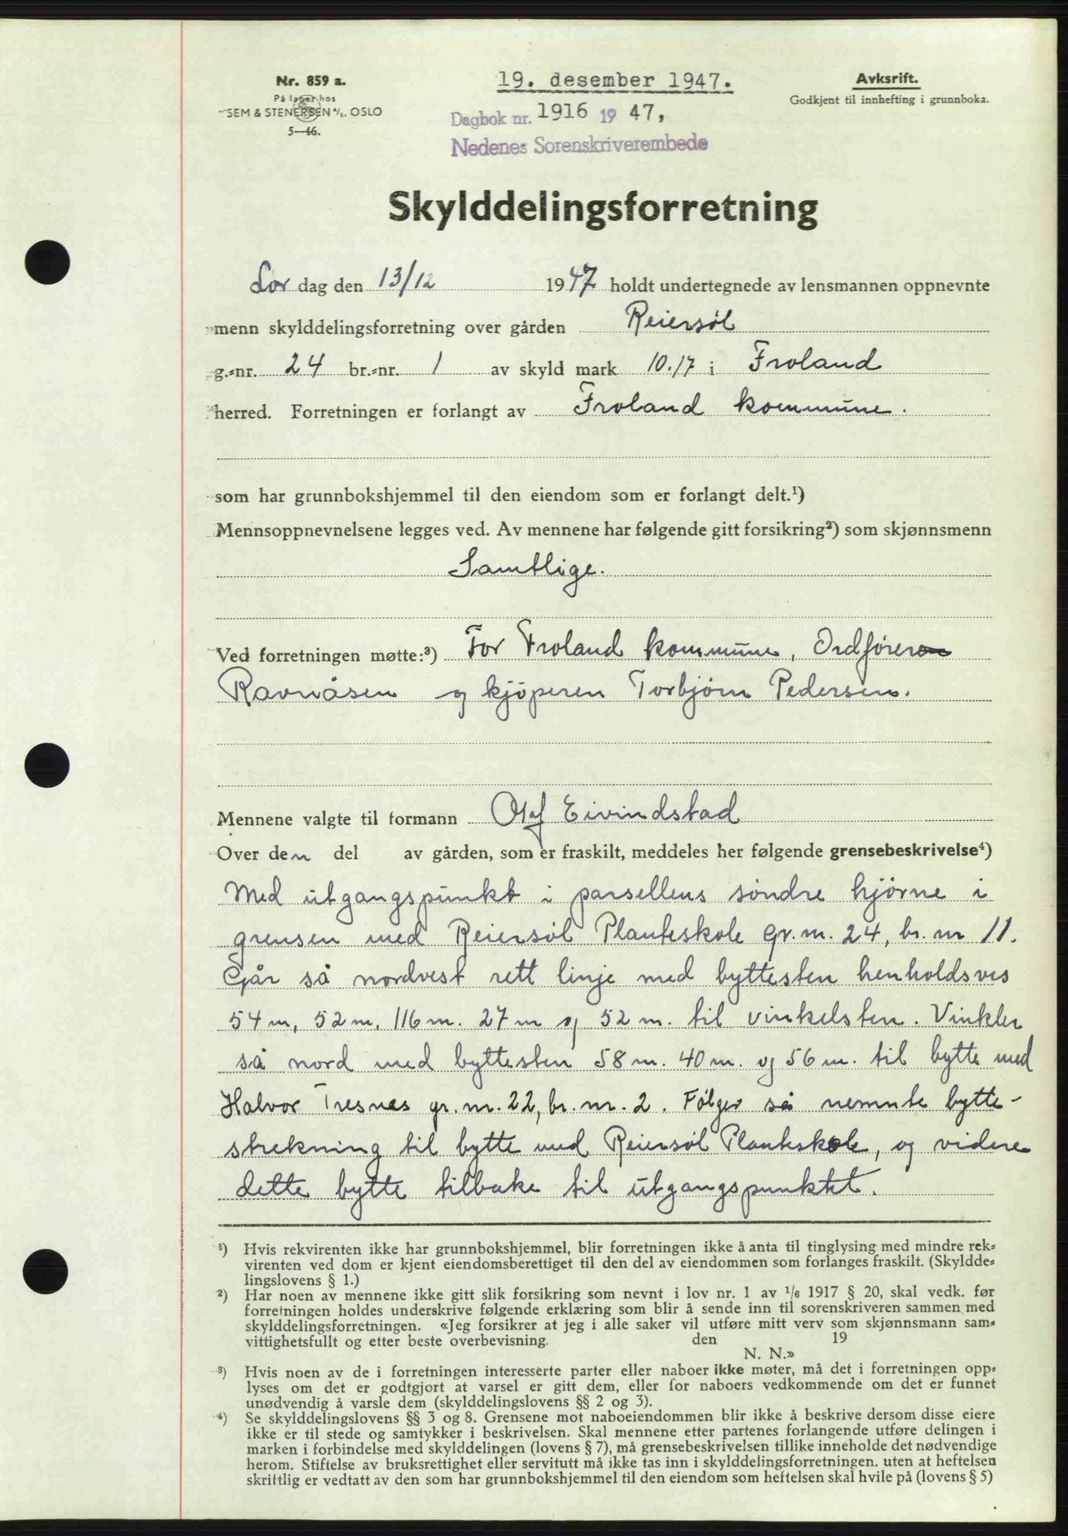 Nr. 859 a.
På lager hos
SEM & STENERSEN A/S. OSLO
5—46.
19. desember 1947.
Dagbok nr. 1916 19 47,
Nedenes Sorenskriverembede
Avksrift.
Godkjent til innhefting i grunnboka.
Skylddelingsforretning
Lør dag den 13/12 1947 holdt undertegnede av lensmannen oppnevnte
menn skylddelingsforretning over gården Reiersøl
g.-nr. 24 br.-nr. 1 av skyld mark 10.17 i Froland
herred. Forretningen er forlangt av Froland kommune.
som har grunnbokshjemmel til den eiendom som er forlangt delt.¹)
Mennsoppnevnelsene legges ved. Av mennene har følgende gitt forsikring²) som skjønnsmenn
Samtlige.
Ved forretningen møtte:³) For Froland kommune, Ordfører
Ravnåsen og kjøperen Torbjørn Pedersen.
Mennene valgte til formann Olaf Eivindstad
Over den del av gården, som er fraskilt, meddeles her følgende grensebeskrivelse⁴)
Med utgangspunkt i parsellens søndre hjørne i
grensen med Reiersøl Planteskole gr. nr. 24, br. nr 11.
Går så nordvest rett linje med byttesten henholdsves
54 m, 52 m, 116 m. 27 m og 52 m. til vinkelsten. Vinkler
så nord med byttesten 58 m. 40 m. og 56 m. til bytte med
Halvor Tresnes gr. nr. 22, br. nr. 2. Følger så nemnte bytte-
strekning til bytte med Reiersøl Planteskole, og videre
dette bytte tilbake til utgangspunktet.
¹) Hvis rekvirenten ikke har grunnbokshjemmel, blir forretningen ikke å anta til tinglysing med mindre rek-
virenten ved dom er kjent eiendomsberettiget til den del av eiendommen som forlanges fraskilt. (Skyldde-
lingslovens § 1.)
²) Har noen av mennene ikke gitt slik forsikring som nevnt i lov nr. 1 av 1/6 1917 § 20, skal vedk. før
forretningen holdes underskrive følgende erklæring som blir å sende inn til sorenskriveren sammen med
skylddelingsforretningen. «Jeg forsikrer at jeg i alle saker vil utføre mitt verv som skjønnsmann sam-
vittighetsfullt og etter beste overbevisning. den 19
N. N.»
³) Hvis noen av de i forretningen interesserte parter eller naboer ikke møter, må det i forretningen opp-
lyses om det er godtgjort at varsel er gitt dem, eller for naboers vedkommende om det er funnet
unødvendig å varsle dem (skylddelingslovens §§ 2 og 3).
⁴) Se skylddelingslovens §§ 3 og 8. Grensene mot naboeiendommen blir ikke å beskrive dersom disse eiere
ikke er til stede og samtykker i beskrivelsen. Skal mennene etter partenes forlangende utføre delingen i
marken i forbindelse med skylddelingen (lovens § 7), må grensebeskrivelsen tillike inneholde det nødvendige
herom. Stiftelse av bruksrettighet eller servitutt må ikke tas inn i skylddelingsforretningen. uten at heftelsen
skriftlig er vedtatt av den som har grunnbokshjemmel til den eiendom som heftelsen skal hvile på (lovens § 5)